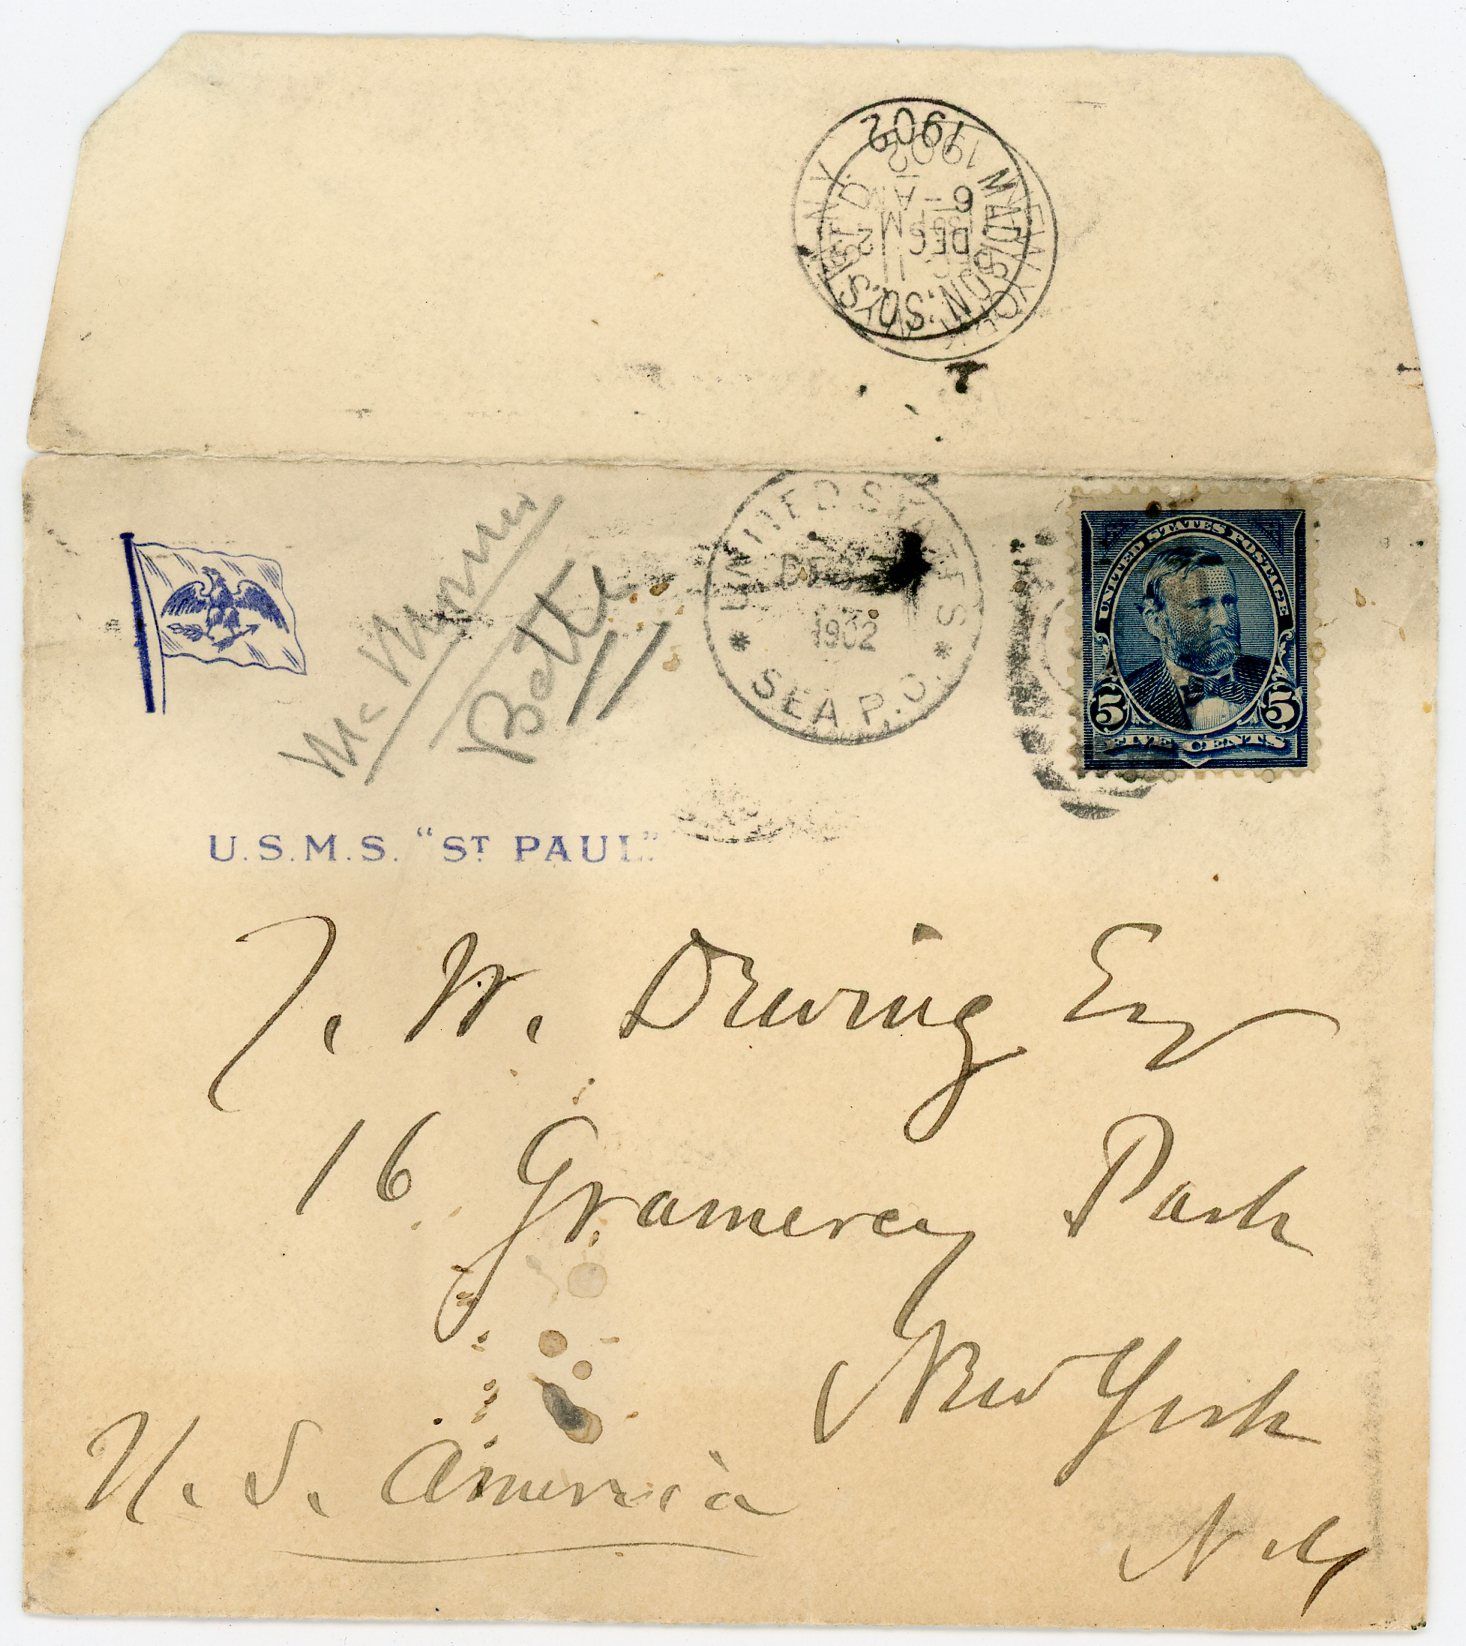 1902
6-A
DEC 2
MADISON SQ. STA. N.Y.
NEW YORK
1902
UNITED STATES
DEC
1902
SEA P.O.
UNITED STATES POSTAGE
5 5
FIVE CENTS
Bette
U.S.M.S. "ST PAUL"
T. W. Dewing Esq
16 Gramercy Park
New York
N.Y
U. S. America